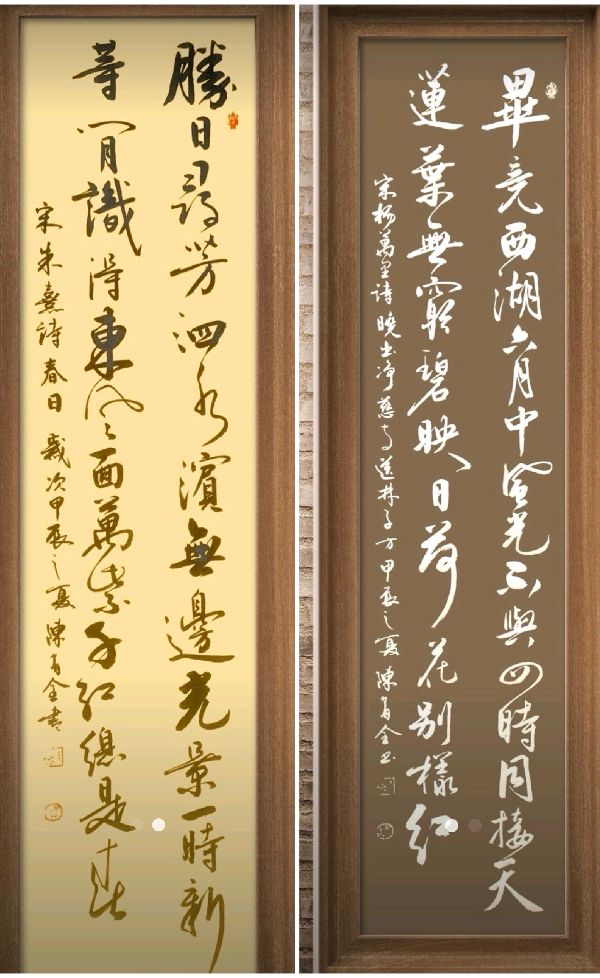 勝日尋芳泗水濱無邊光景一時新
等閒識得東風面萬紫千紅總是春
宋朱熹詩春日 歲次甲辰之夏 陳全書
畢竟西湖六月中風光不與四時同接天
蓮葉無窮碧映日荷花别樣紅
宋楊萬里詩曉出净慈寺送林子方甲辰之夏陳全書